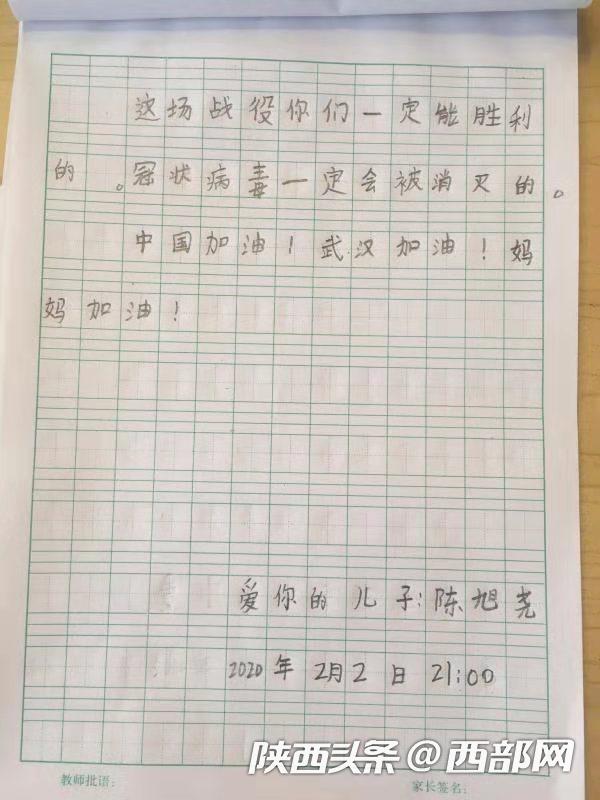 这场战役你们一定能胜利
的。冠状病毒一定会被消灭的。
中国加油!武汉加油!妈
妈加油!
爱你的儿子:陈旭尧
2020年2月2日21:00
陕西头条@西部网
教师批语:
家长签名: